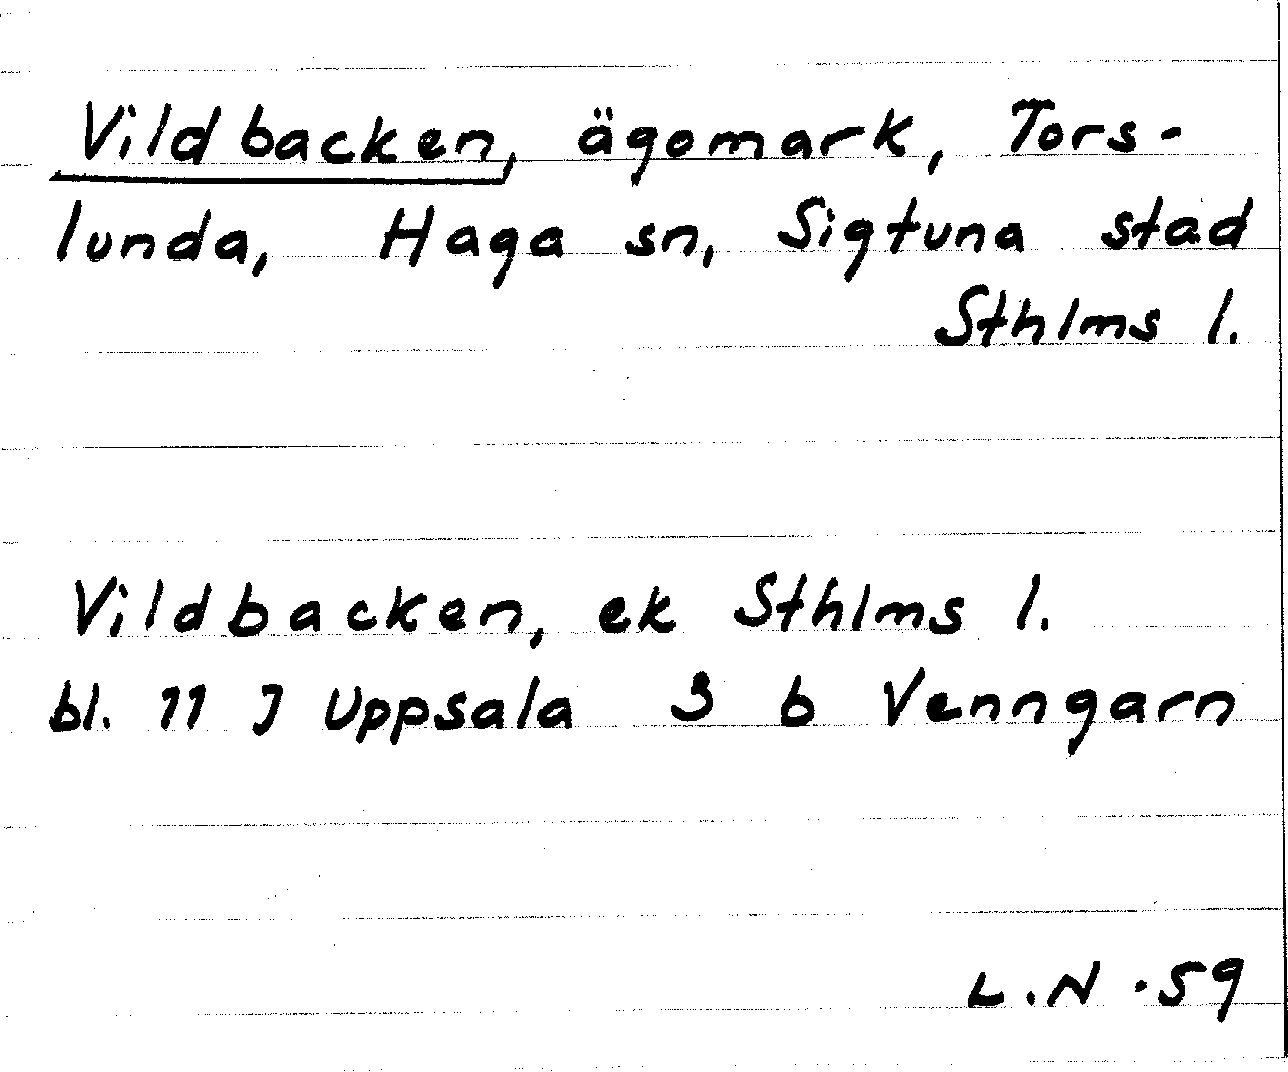 Vildbacken, ägomark, Tors-
lunda, Haga sn, Sigtuna stad
Sthlms l.
Vildbacken, ek Sthlms l.
bl. 11 J Uppsala 3 b Venngarn
L.N. 59